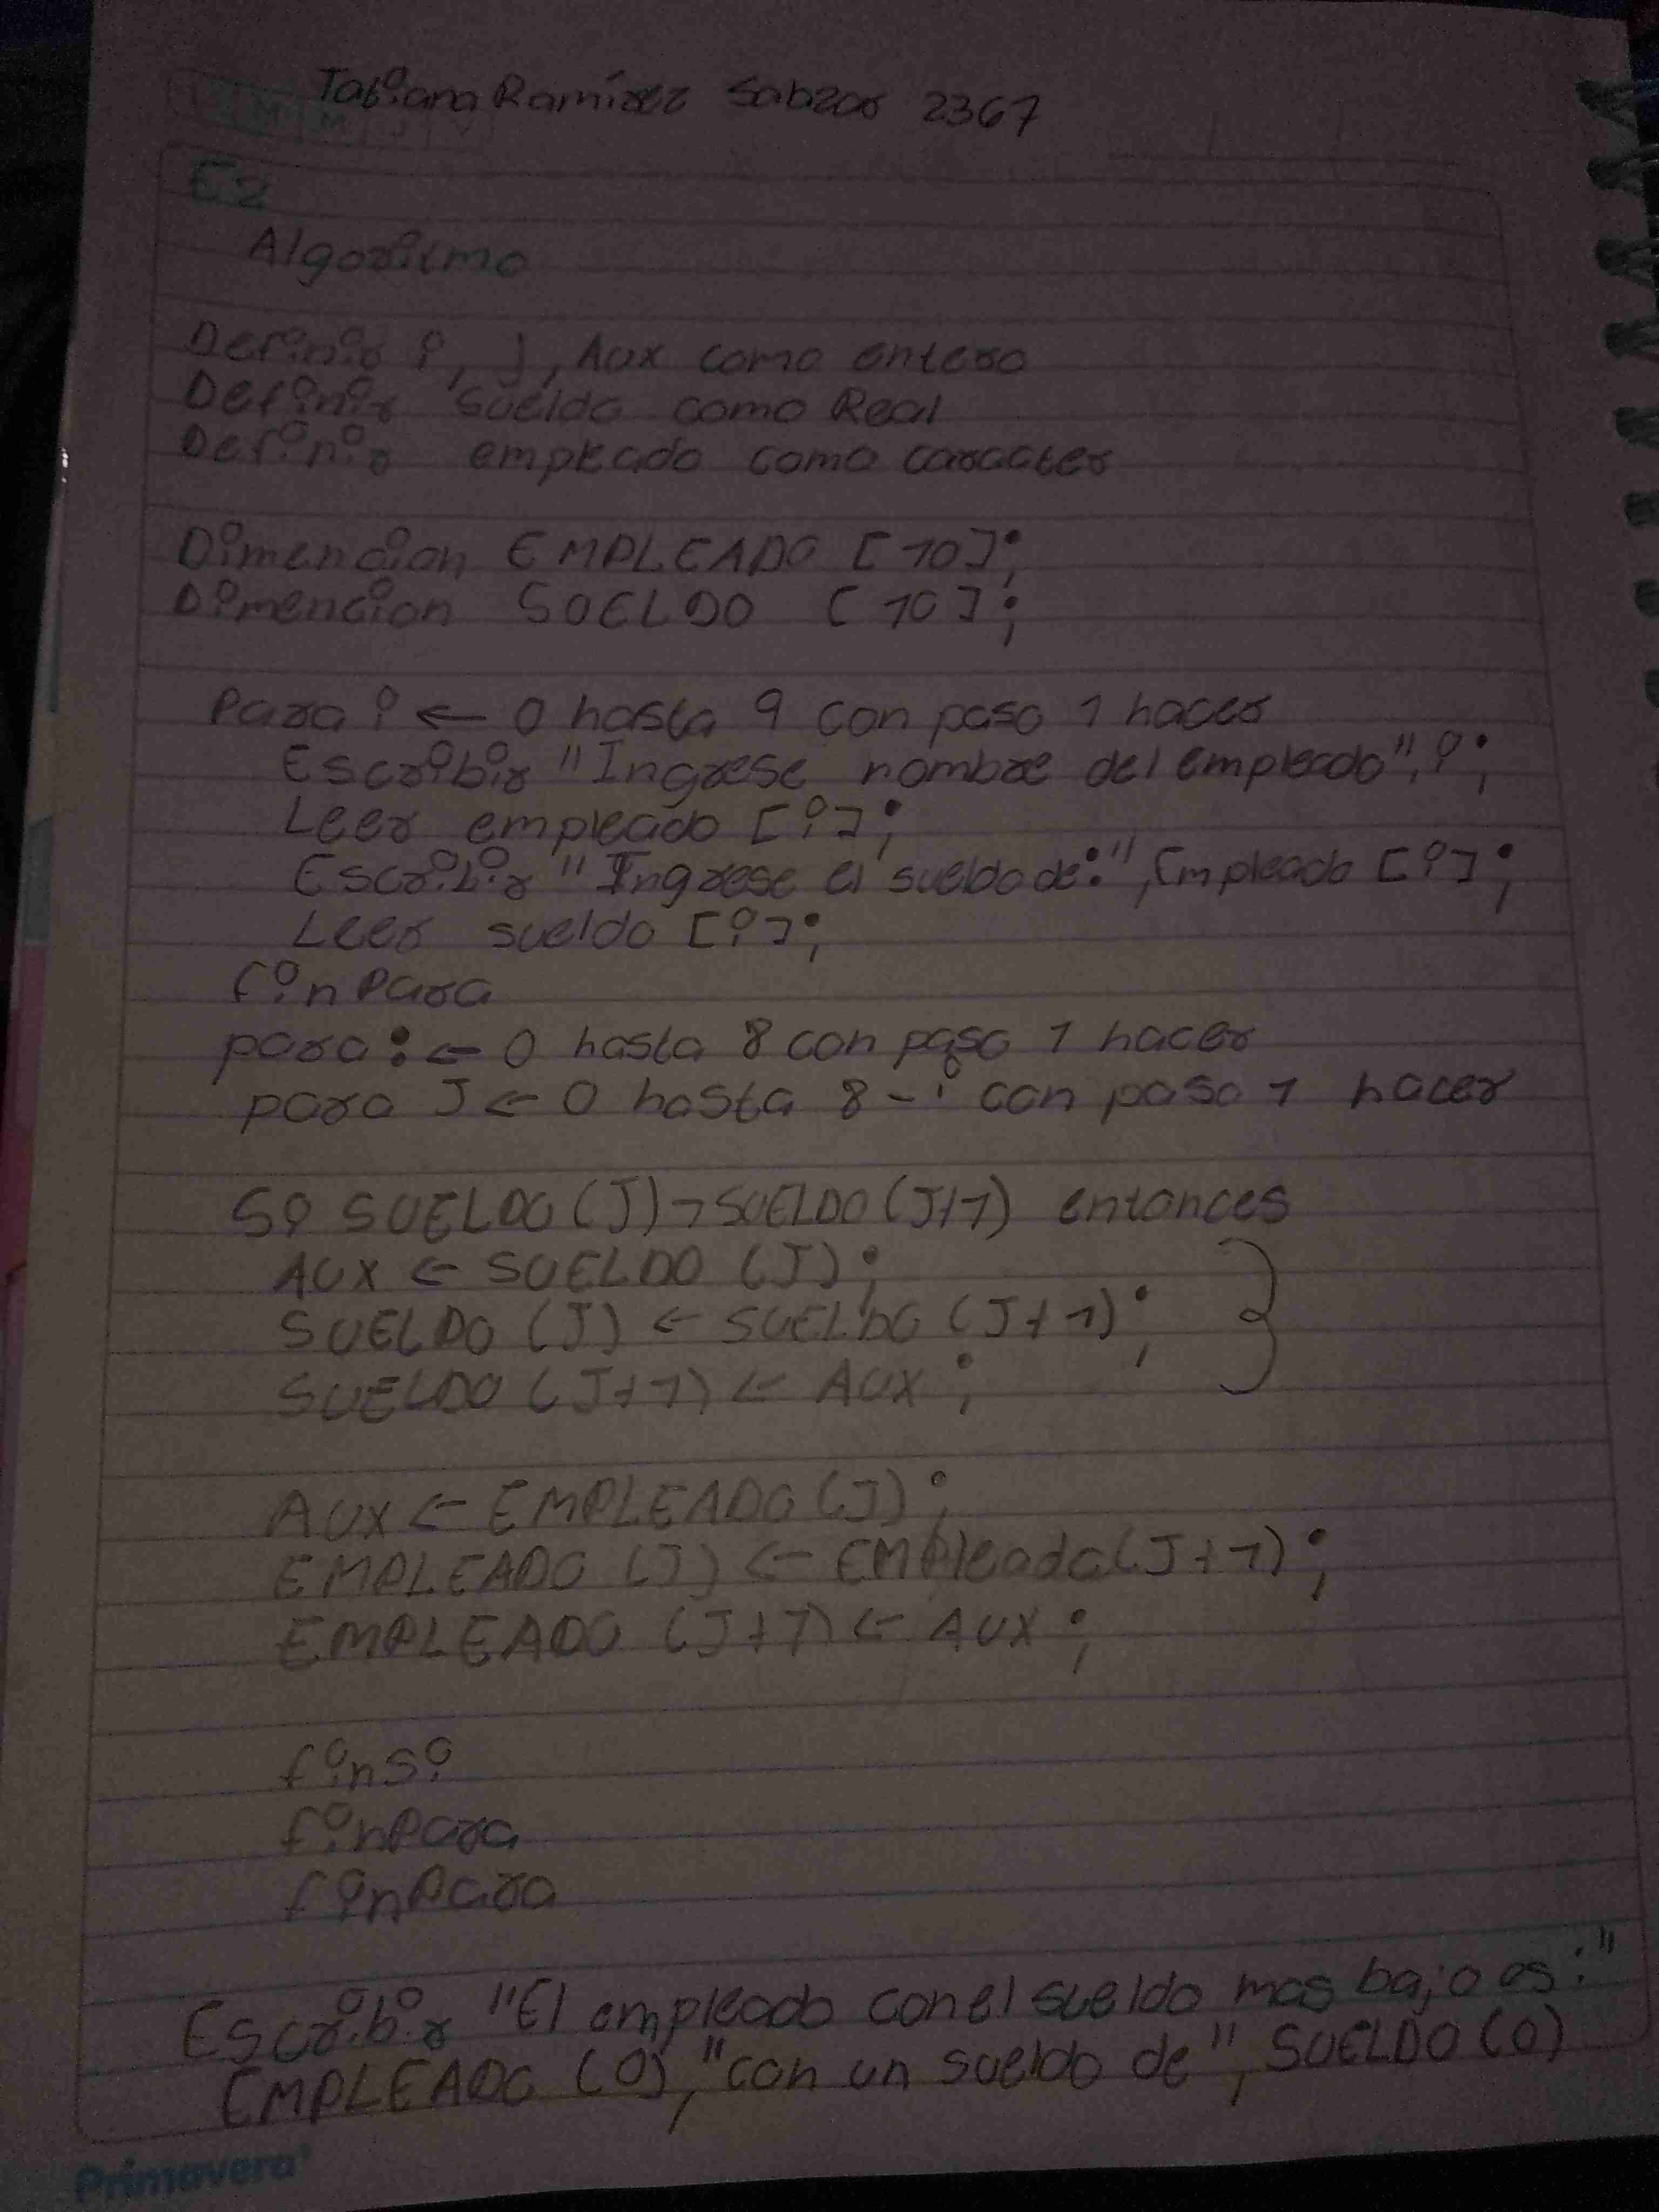 Tatiana Ramírez Salazar 2367
E2
Algoritmo
Definir i, j, Aux como entero
Definir sueldo como Real
Definir empleado como caracter
Dimencion EMPLEADO [10];
Dimencion SUELDO [10];
Para i ← 0 hasta 9 con paso 1 hacer
Escribir "Ingrese nombre del empleado", i;
Leer empleado [i];
Escribir "Ingrese el sueldo de:", Empleado [i];
Leer sueldo [i];
finPara
para i ← 0 hasta 8 con paso 1 hacer
para J ← 0 hasta 8 - i con paso 1 hacer
Si SUELDO (J) > SUELDO (J+1) entonces
AUX ← SUELDO (J);
SUELDO (J) ← SUELDO (J+1);
SUELDO (J+1) ← AUX;
AUX ← EMPLEADO (J);
EMPLEADO (J) ← EMPleado (J+1);
EMPLEADO (J+1) ← AUX;
finsi
finPara
finPara
Escribir "El empleado con el sueldo mas bajo es:"
EMPLEADO (0), "con un sueldo de", SUELDO (0)
Primavera